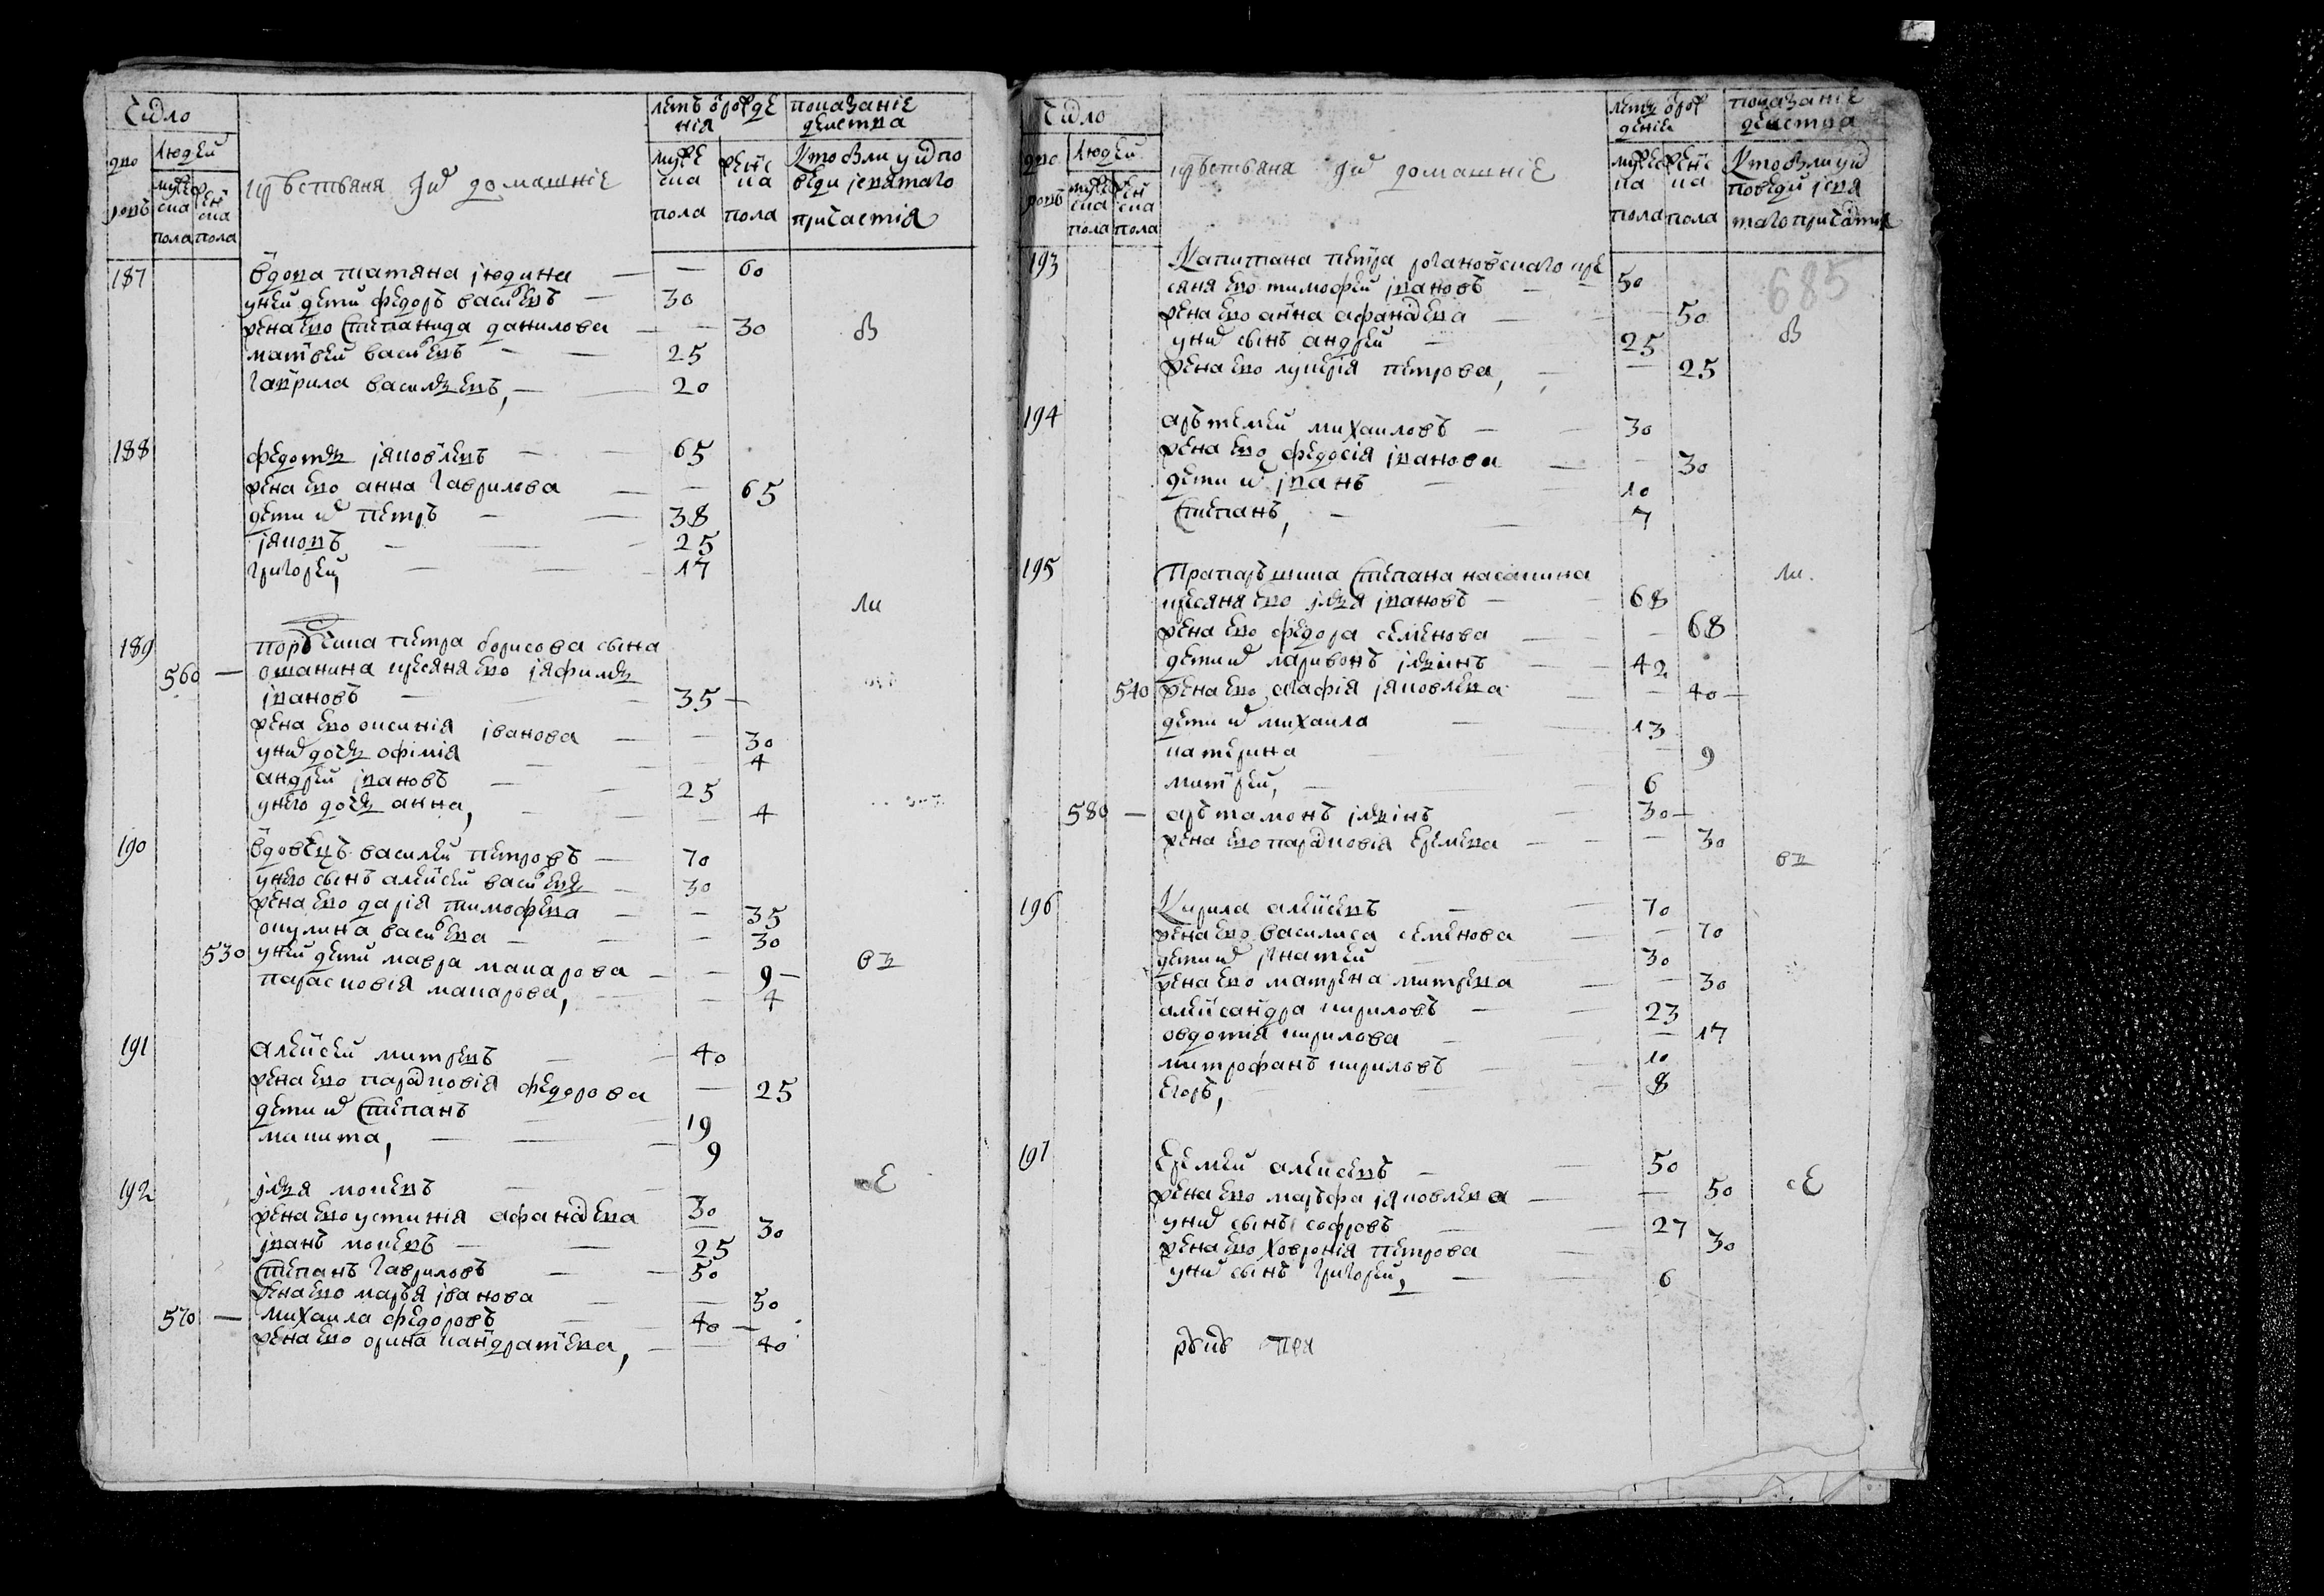 Число
дво
ровъ
людей
муже
ска
пола
жен
ска
пола
крестьяня и домашние
летъ от рожде
ния
муже
ска
пола
женс
ка
пола
показание
действа
Кто были у испо
веди и святаго
причастия
187 вдова татяна июдина — — 60
у ней дети федоръ васильевъ — 30
жена ево степанида данилова — — 30
матвей васильевъ — — 25
гаврила васильевъ, — 20
188 федотъ яковлевъ — — 65
жена ево анна гаврилова — — 65
дети их петръ — — 38
яковъ — — 25
григорей, — — 17
189 порутчика петра борисова сына
560 — ошанина кресяня ево
ивановъ — — 35 —
жена ево оксиния иванова — — 30
у них дочь офимия — — 4
андрей ивановъ — — 25
у него дочь анна, — — 4
190 вдовецъ василей петровъ — 70
у него сынъ алексей васильевъ — 30
жена ево дария тимофеева — — 35
окулина васильева — — 30
530 у ней дети мавра макарова — — 9 —
парасковия макарова, — — 4
191 алексей митревъ — — 40
жена ево парасковия федорова — 25
дети их степанъ — 19
микита, — — 9
192 илья мокеевъ — — 30
жена ево устиния афанасева — 30
иванъ мокеевъ — — 25
степанъ гавриловъ — — 50
жена ево марья иванова — — 50
570 — михаила федоровъ — 40 —
жена ево орина кандратева, — — 40
Число
дво
ровъ
людей
муже
ска
пола
жен
ска
пола
крестьяня и домашние
летъ от рож
дение
мужес
ка
пола
женс
ка
пола
показание
действа
Кто были ис
поведи и свя
таго причастия
685
193 Капитана петра рогановскаго кре
сяня ево тимофей ивановъ — — 50
жена ево анна афанасева — — 50
у них сынъ андрей — 25
жена ево лукерия петрова, — — 25
194 артемей михаиловъ — — 30
жена ево федосия иванова — — 30
дети их иванъ — — 10
степанъ, — — 7
195 Прапорщика степана насакина
кресяня ево илья ивановъ — 68
жена ево федора семенова — — 68
дети их ларивонъ ильинъ — 42
540 жена ево агафия яковлева — — 40 —
дети их михаила — 13
катерина — — 9
митрей, — — 6
580 — артамонъ ильинъ — 30 —
жена ево парасковия еремева — — 30
196 Кирила алексевъ — — 70
жена ево василиса семенова — — 70
дети их игнатей — 30
жена ево матрена митрева — — 30
александра кириловъ — — 23
овдотия кирилова — — 17
митрофанъ кириловъ — — 10
егоръ, — — 8
197 Еремей алексевъ — — 50
жена ево марфа яковлева — — 50
у них сынъ софронъ — — 27
жена ево ховрония петрова — — 30
у них сынъ григорей, — — 6